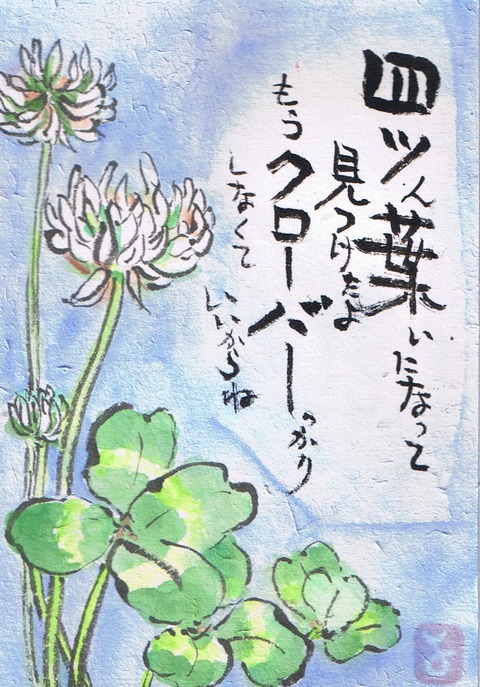 四ツん葉いになって
見つけたよ
もうクローバーっかり
しなくていいからね